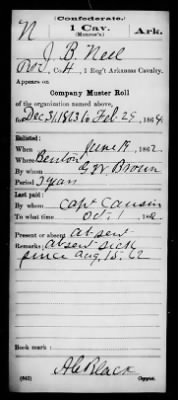 (Confederate.)
N 1 Cav. Ark.
(Monroe's)
J. B. Neel
Pvt, Co. H, 1 Reg't Arkansas Cavalry.
Appears on
Company Muster Roll
of the organization named above,
for Dec 31, 1863 to Feb 29, 1864
Enlisted:
When June 19, 1862.
Where Benton
By whom G W Brown
Period 3 years
Last paid:
By whom Capt Causin
To what time Oct. 1, 186 .
Present or absent absent
Remarks: absent sick
since Aug. 15. 62
Book mark:
A C Black
(642) Copyist.